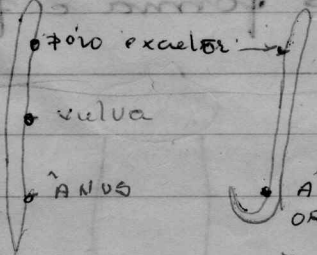 Póro excretor
vulva
ÂNUS
Â
OR